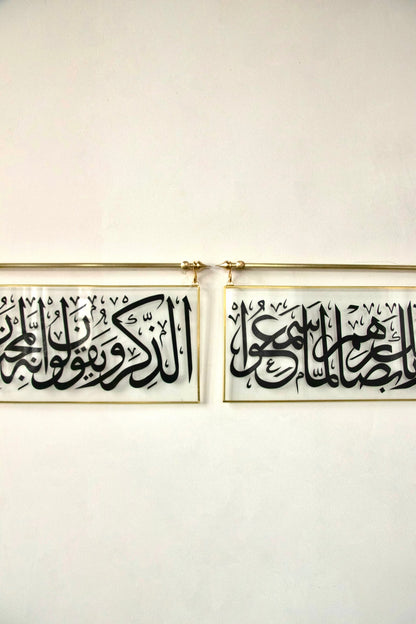 بأبصارهم لما سمعوا
الذكر ويقولون إنه